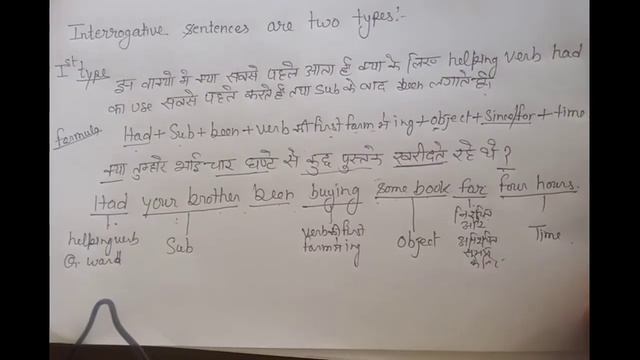 Interrogative sentences are two types:-
Ist type इन वाक्यो में क्या सबसे पहले आता है क्या के लिए helping verb had
का use सबसे पहले करते हैं तथा sub के बाद been लगाते हैं।
formula Had + Sub + been + verb की first form में ing + object + Since/for + time
क्या तुम्हारे भाई चार घण्टे से कुछ पुस्तके खरीदते रहे थे ?
Had your brother been buying some book for four hours.
helping verb Sub verb की first form में ing object निश्चित और अनिश्चित समय के लिए Time
Q. ward